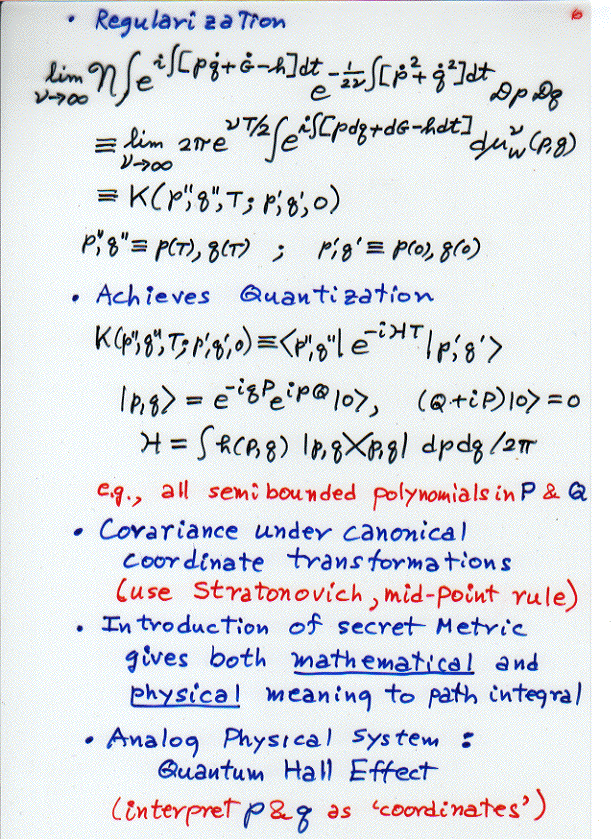 • Regularization 6
lim_{ν→∞} 𝒩 ∫ e^{i∫[pq̇+Ġ-h]dt} e^{-\frac{1}{2ν}∫[ṗ²+q̇²]dt} 𝒟p 𝒟q
≡ lim_{ν→∞} 2π e^{νT/2} ∫ e^{i∫[pdq+dG-hdt]} dμ_W^ν(p,q)
≡ K(p",q",T; p',q',0)
p",q" ≡ p(T), q(T) ; p',q' ≡ p(0), q(0)
• Achieves Quantization
K(p",q",T; p',q',0) ≡ <p",q"| e^{-iℋT} |p',q'>
|p,q> = e^{-iqP} e^{ipQ} |0>, (Q+iP)|0> = 0
ℋ = ∫ h(p,q) |p,q><p,q| dpdq/2π
e.g., all semibounded polynomials in P & Q
• Covariance under canonical
coordinate transformations
(use Stratonovich, mid-point rule)
• Introduction of secret Metric
gives both mathematical and
physical meaning to path integral
• Analog Physical System :
Quantum Hall Effect
(interpret p & q as 'coordinates')